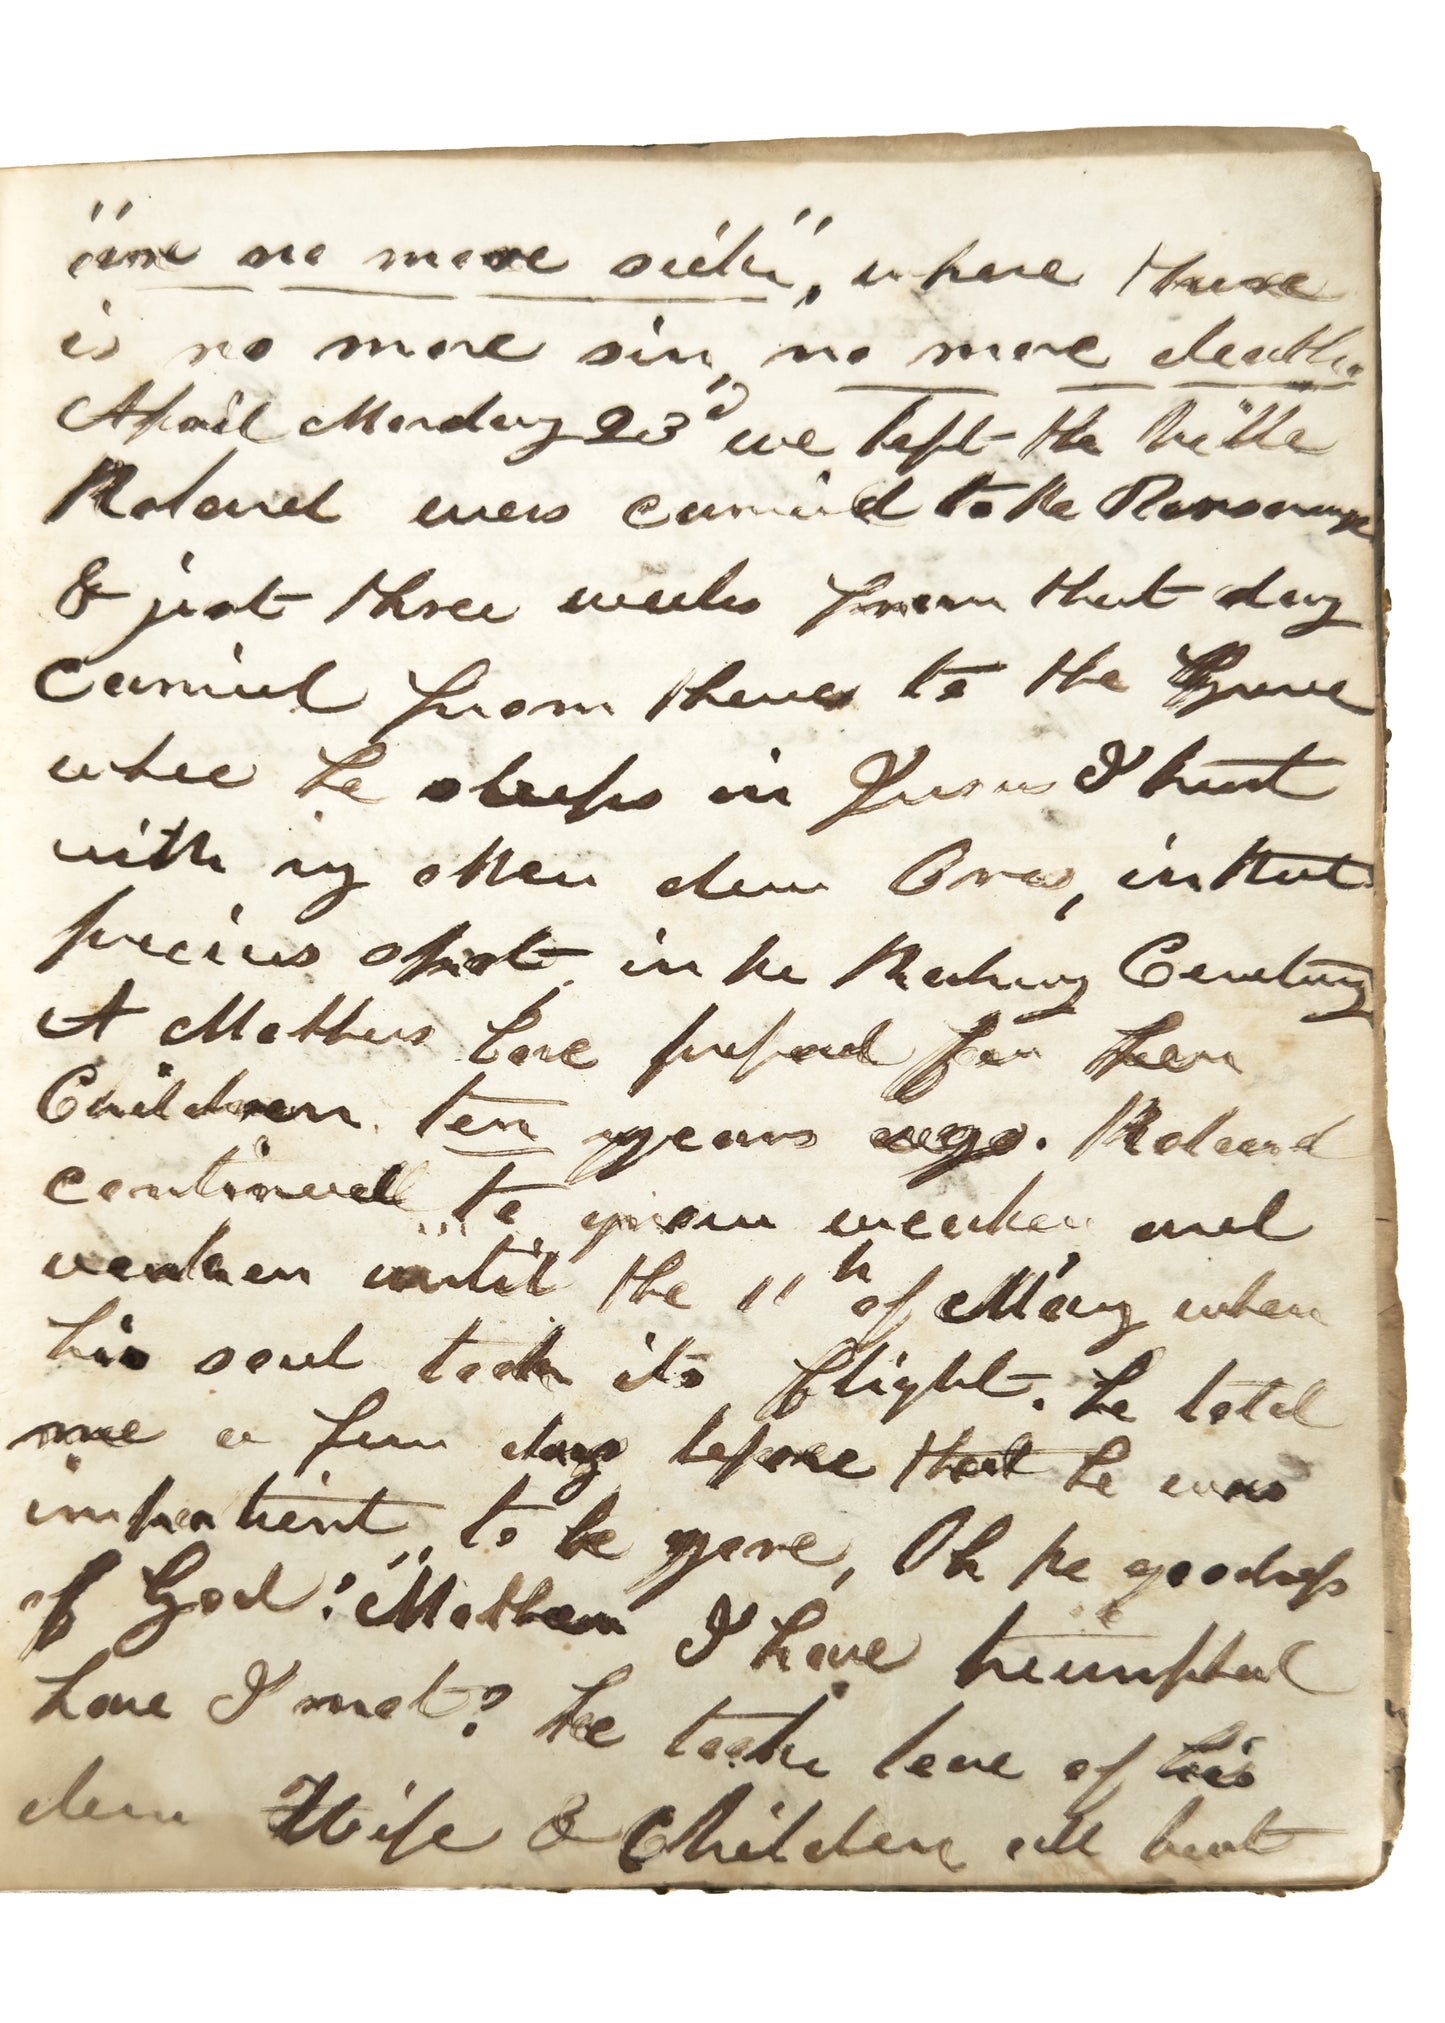 "are no more sick", where there
is no more sin, no more death.
April Monday 23d we left the
Roland was carried to the Parsonage
& just three weeks from that day
carried from thence to the Grave
whee he sleeps in Jesus I trust
with my other dear Ones, in that
precius spot, in the Cemetary
A Mothers love prepared for her
Children ten years ago. Roland
continued to grow weaker and
weaker until the 11th of May when
his soul took its flight. he told
me a few days before that he was
impatient to be gone, Oh the goodness
of God! "Mother I have triumphed
have I not? he took leve of his
dear Wife & Children all but